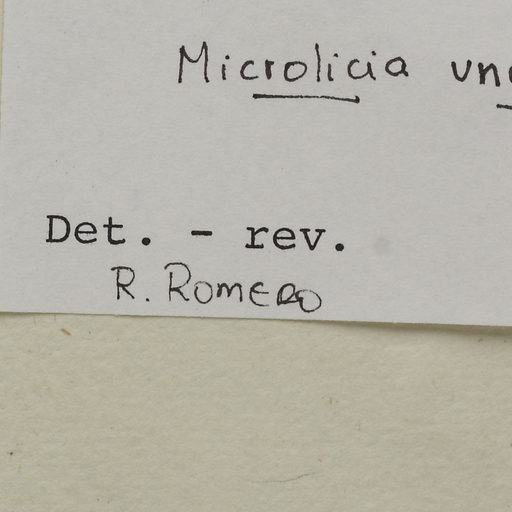 Microlicia
Det. - rev.
R. Romero